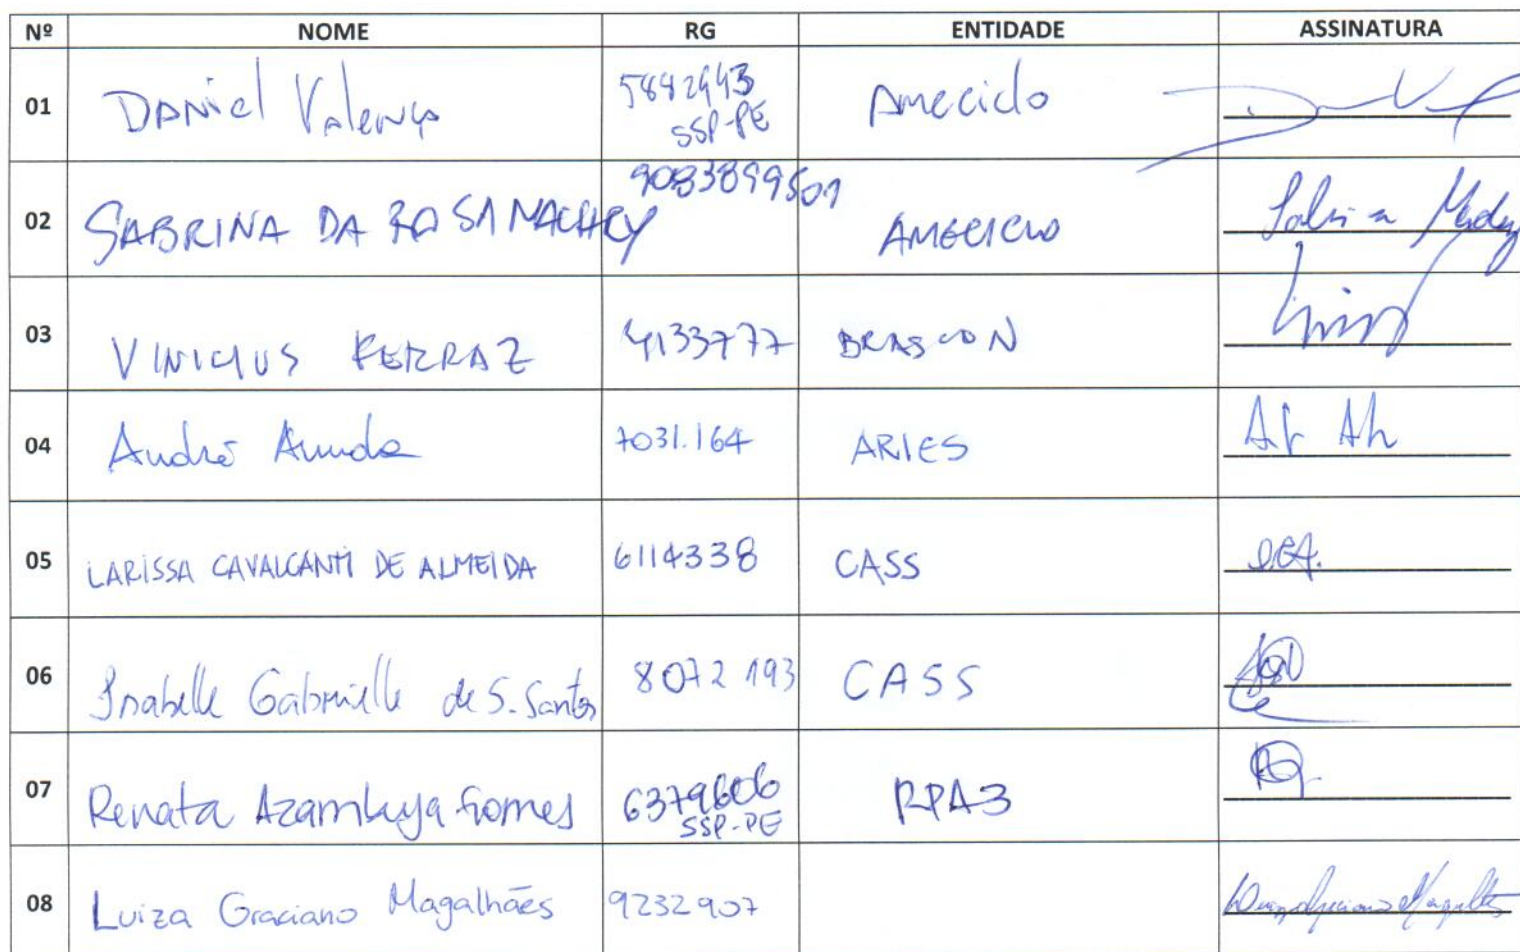 Nº NOME RG ENTIDADE ASSINATURA
01 Daniel Valença 5842943 Ameciclo
SSP-PE
02 SABRINA DA ROSA MACHRY 9083899501 AMECICLO
03 VINICIUS FERRAZ 4133777 BRASCON
04 André Arruda 7031.164 ARIES
05 LARISSA CAVALCANTI DE ALMEIDA 6114338 CASS
06 Isabelle Gabrielle de S. Santos 8072 193 CASS
07 Renata Azambuja Gomes 6379606 RPA3
SSP-PE
08 Luiza Graciano Magalhães 9232907